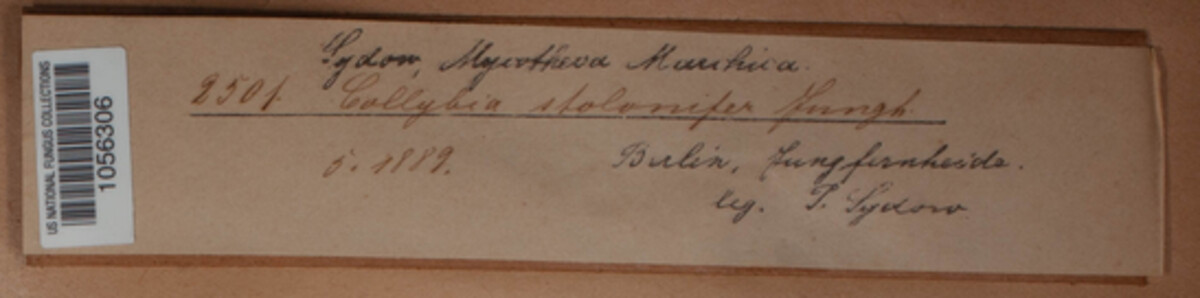 US NATIONAL FUNGUS COLLECTIONS
1056306
Sydow, Mycotheca Marchica.
2501. Collybia stolonifer Jungh.
5. 1889.
Berlin, Jungfernheide.
leg. P. Sydow